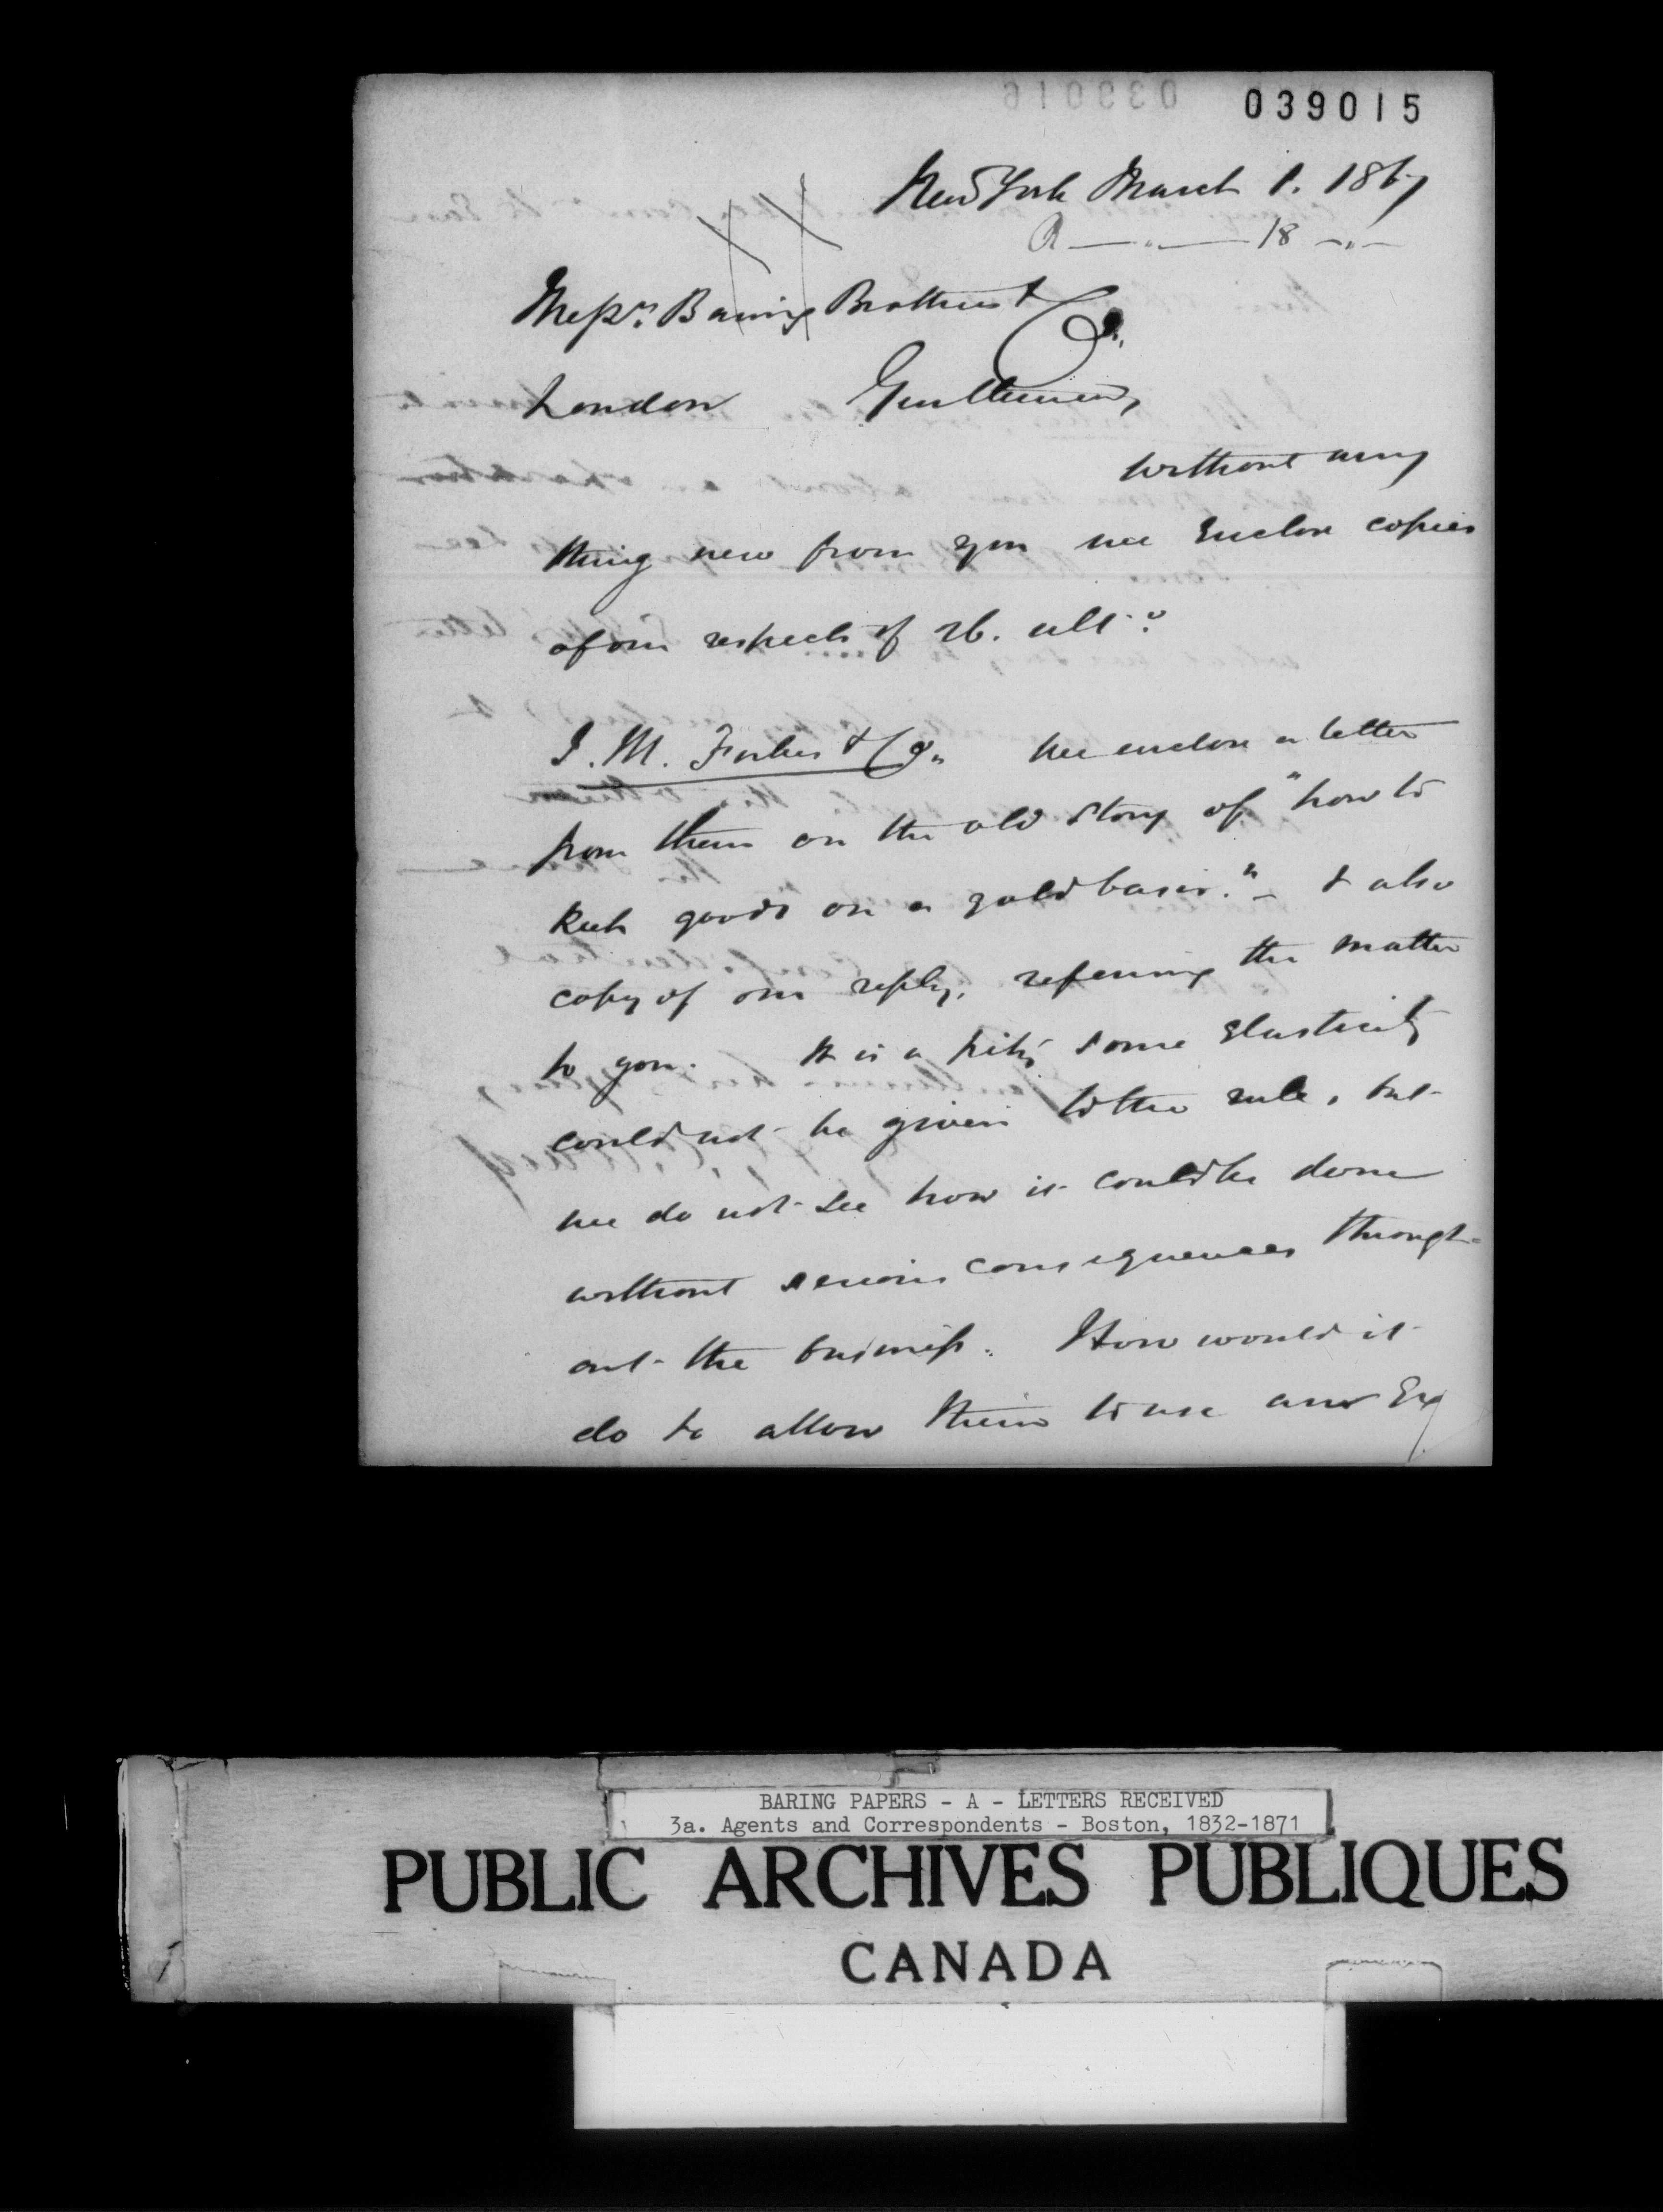 039015
New York March 1. 1867
R — " — 18 — " —
Messrs. Baring Brothers & Co.
London Gentlemen,
Without any
thing new from you we enclose copies
of our respects of 26. ulto.
J. M. Forbes & Co. We enclose a letter
from them on the old story of "how to
goods on a gold basis." – & also
copy of our reply, referring the matter
to you. It is a pity some elasticity
could not be given to the rule, but
we do not see how it could be done
without serious consequences through-
out the business. How would it
do to allow them to use our
BARING PAPERS - A - LETTERS RECEIVED
3a. Agents and Correspondents - Boston, 1832-1871
PUBLIC ARCHIVES PUBLIQUES
CANADA